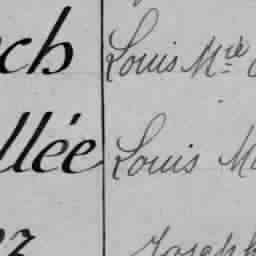 ch Louis Mie
llée Louis M
ez Joseph